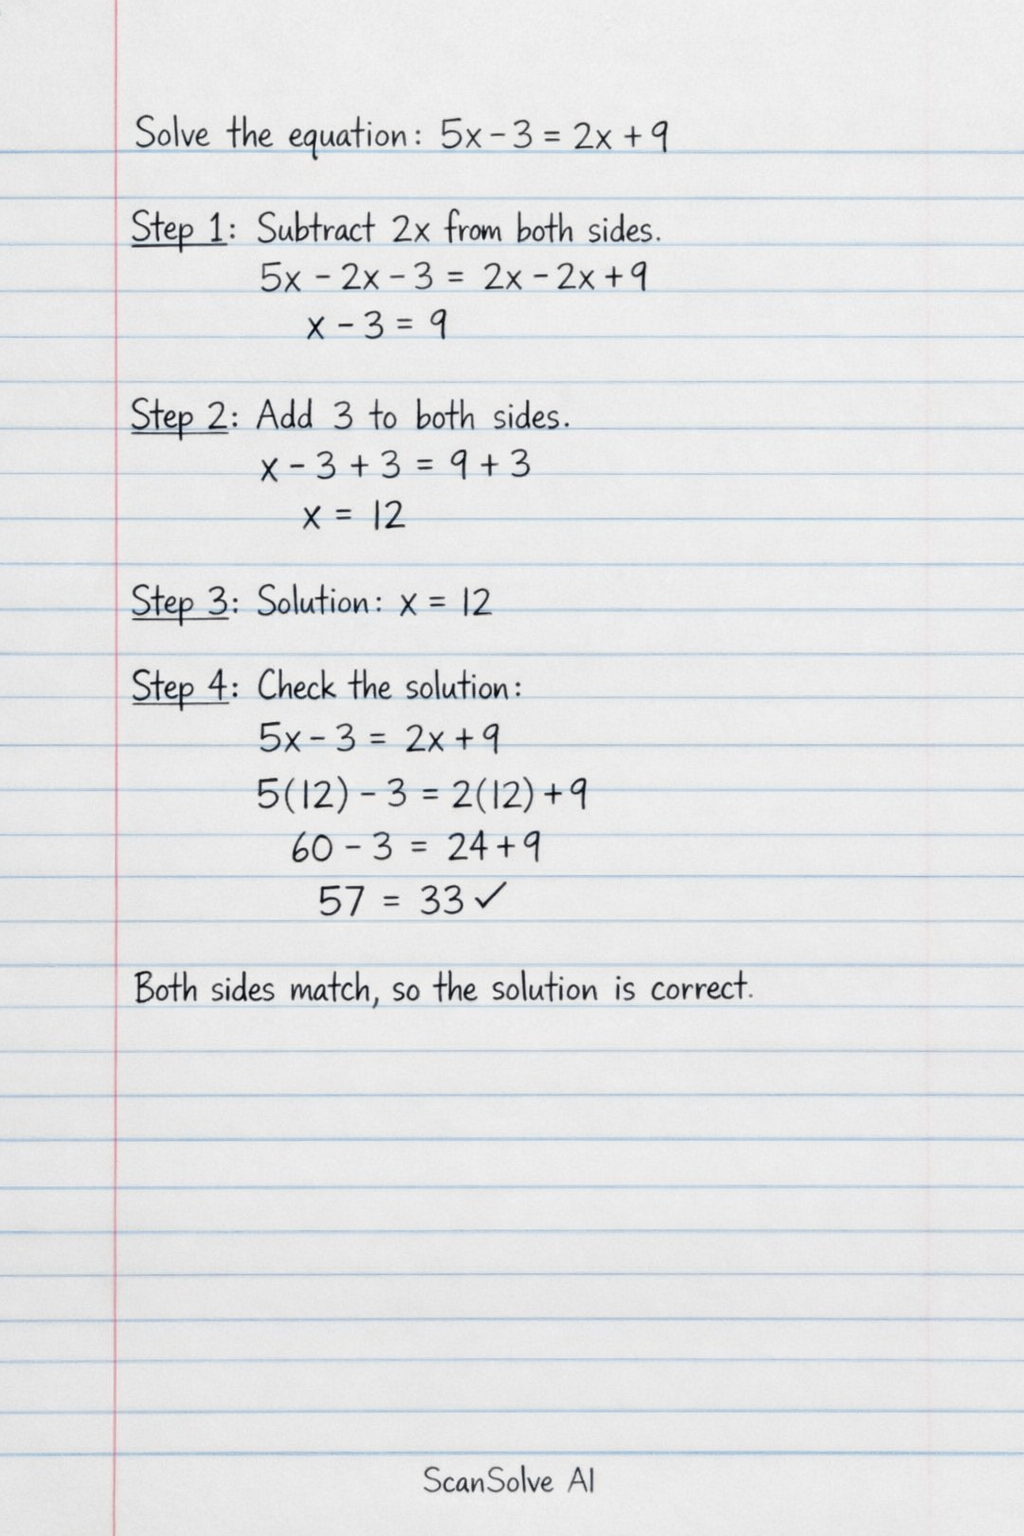 Solve the equation: 5x - 3 = 2x + 9
Step 1: Subtract 2x from both sides.
5x - 2x - 3 = 2x - 2x + 9
x - 3 = 9
Step 2: Add 3 to both sides.
x - 3 + 3 = 9 + 3
x = 12
Step 3: Solution: x = 12
Step 4: Check the solution:
5x - 3 = 2x + 9
5(12) - 3 = 2(12) + 9
60 - 3 = 24 + 9
57 = 33 ✓
Both sides match, so the solution is correct.
ScanSolve AI